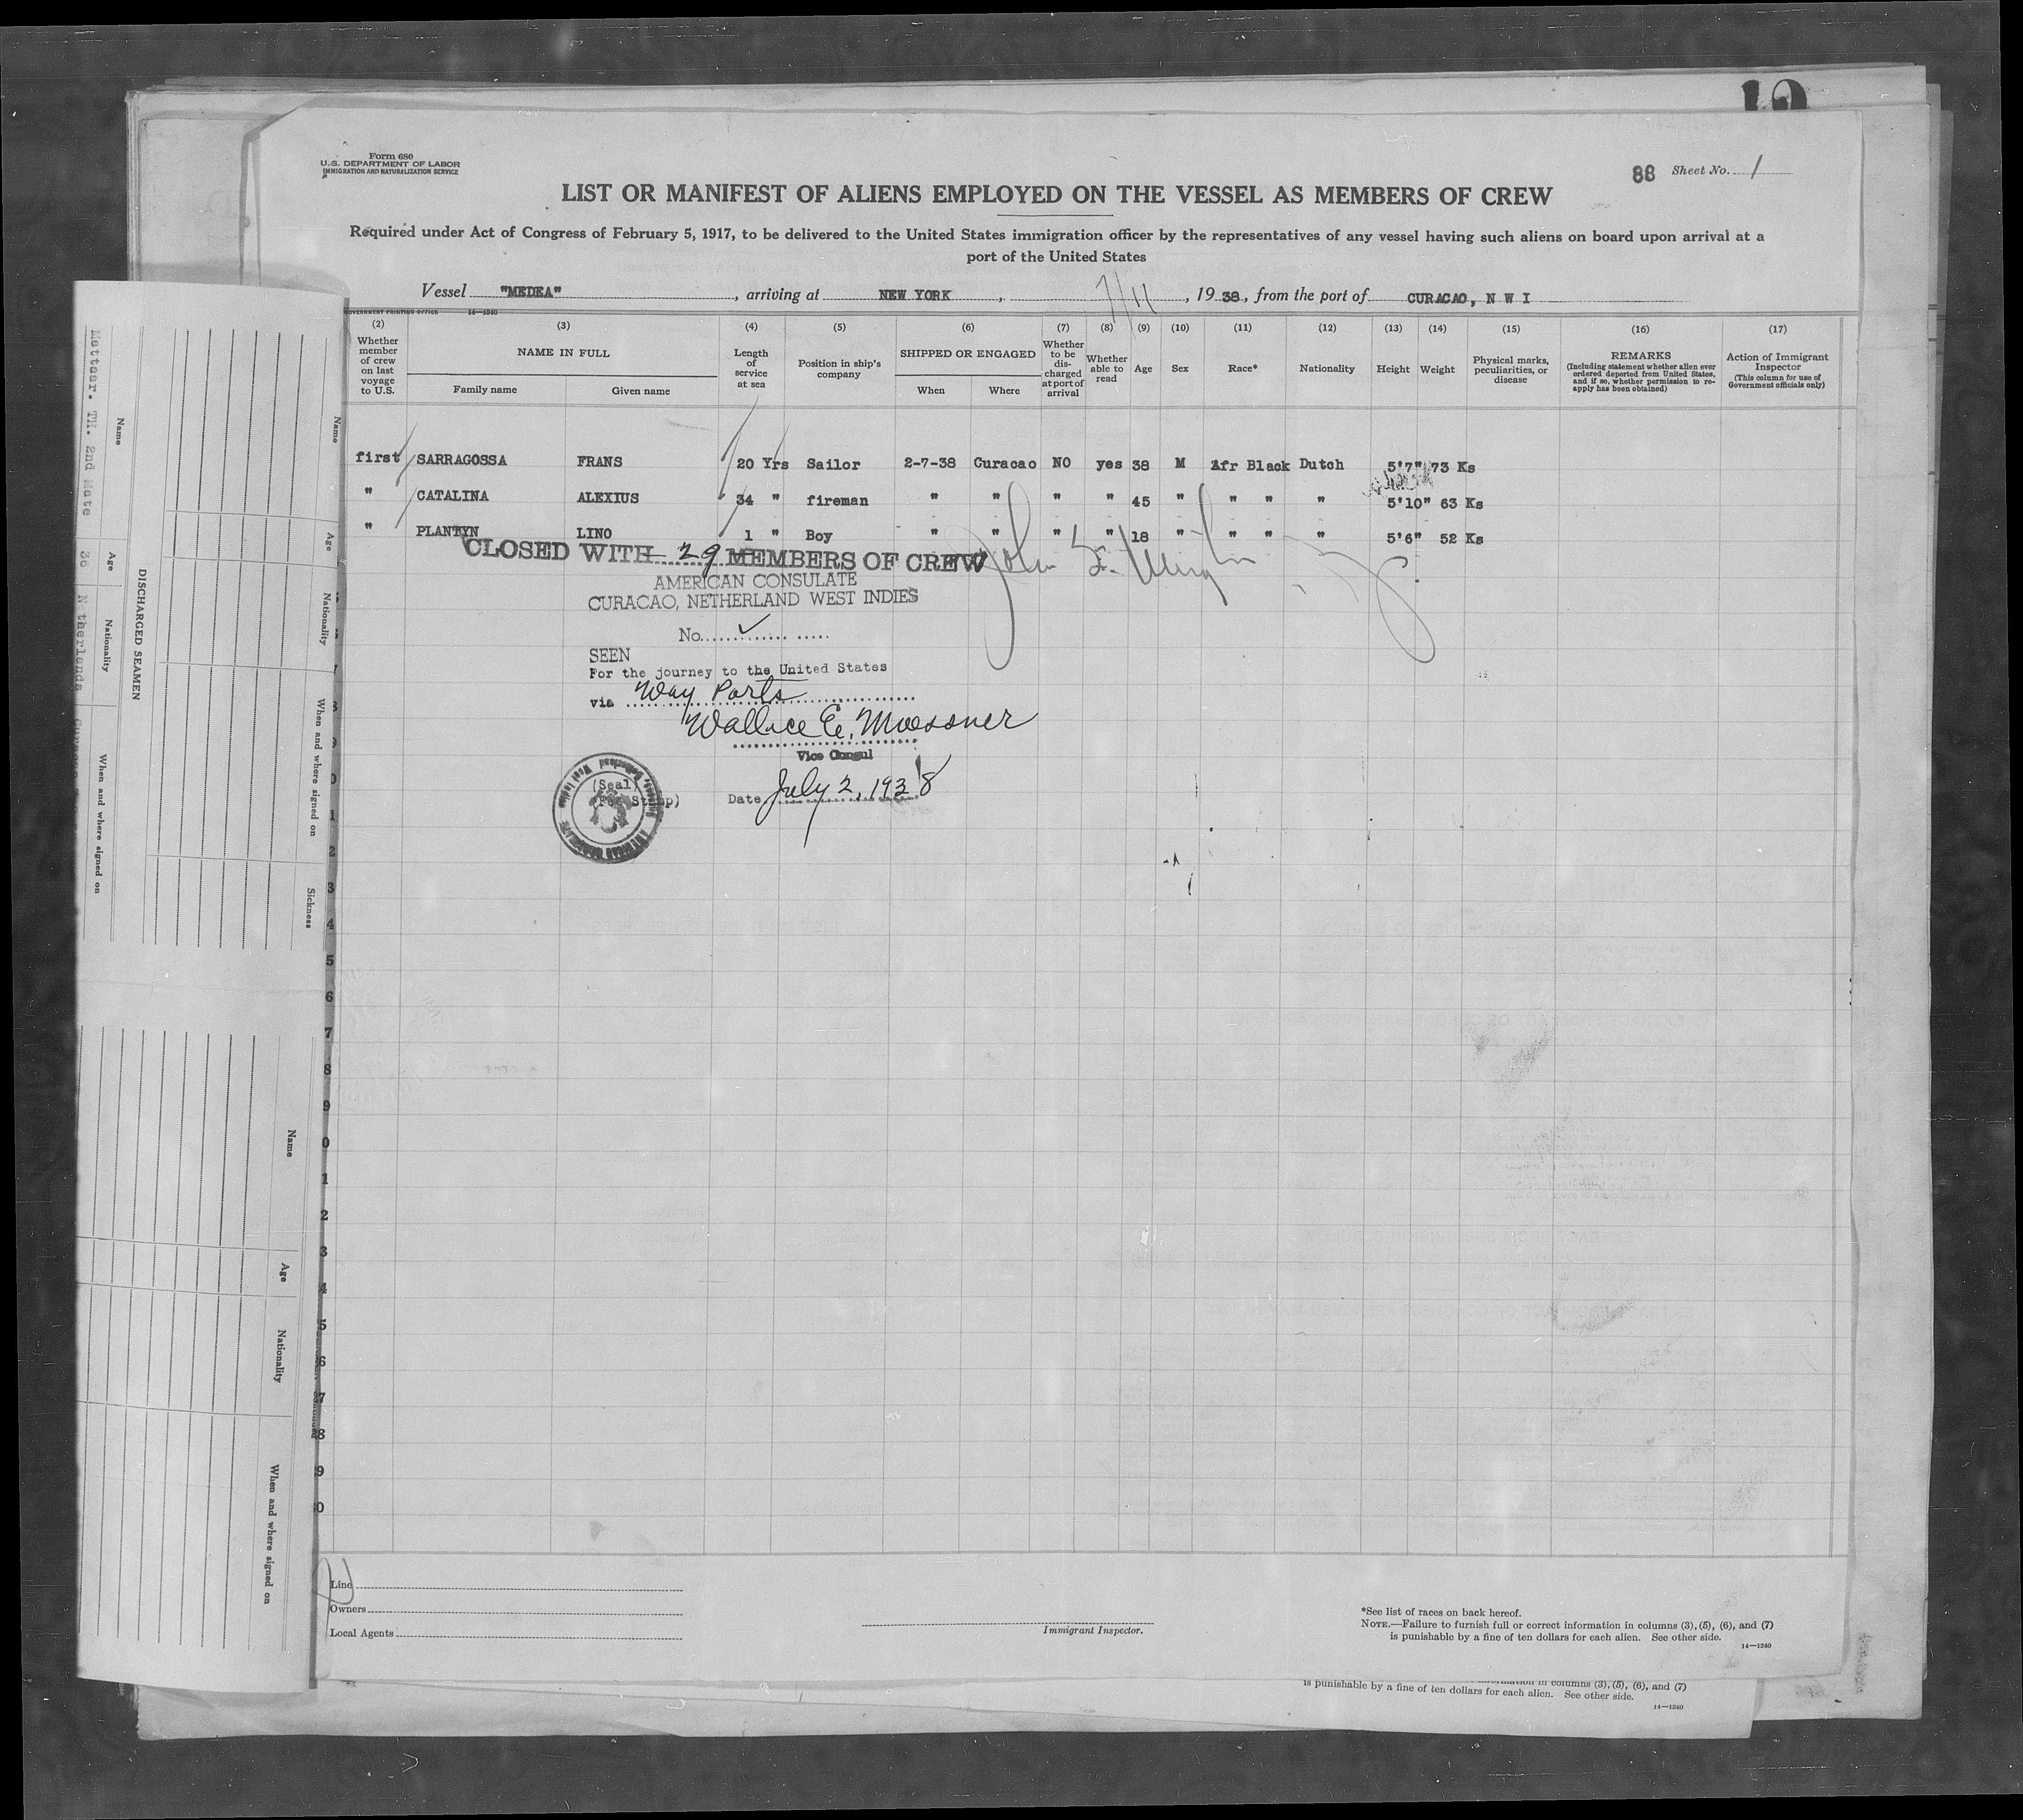 12
Form 680
U.S. DEPARTMENT OF LABOR
IMMIGRATION AND NATURALIZATION SERVICE
88 Sheet No. 1
LIST OR MANIFEST OF ALIENS EMPLOYED ON THE VESSEL AS MEMBERS OF CREW
Required under Act of Congress of February 5, 1917, to be delivered to the United States immigration officer by the representatives of any vessel having such aliens on board upon arrival at a
port of the United States
Vessel "MEDEA", arriving at NEW YORK, 7/11, 1938, from the port of CURACAO, N W I
GOVERNMENT PRINTING OFFICE 14—1240
(2) (3) (4) (5) (6) (7) (8) (9) (10) (11) (12) (13) (14) (15) (16) (17)
Whether member of crew on last voyage to U.S.
NAME IN FULL
Family name Given name
Length of service at sea
Position in ship's company
SHIPPED OR ENGAGED
When Where
Whether to be discharged at port of arrival
Whether able to read
Age
Sex
Race*
Nationality
Height
Weight
Physical marks, peculiarities, or disease
REMARKS
(Including statement whether alien ever ordered deported from United States, and if so, whether permission to re-apply has been obtained)
Action of Immigrant Inspector
(This column for use of Government officials only)
first SARRAGOSSA FRANS 20 Yrs Sailor 2-7-38 Curacao NO yes 38 M Afr Black Dutch 5'7" 73 Ks
" CATALINA ALEXIUS 34 " fireman " " " " 45 " " " " 5'10" 63 Ks
" PLANTYN LINO 1 " Boy " " " " 18 " " " " 5'6" 52 Ks
CLOSED WITH 29 MEMBERS OF CREW
AMERICAN CONSULATE
CURACAO, NETHERLAND WEST INDIES
No.
SEEN
For the journey to the United States
via Way Ports
Wallace E. Moessner
Vice Consul
(Seal)
Date July 2, 1938
Line
Owners
Local Agents
Immigrant Inspector.
*See list of races on back hereof.
NOTE.—Failure to furnish full or correct information in columns (3), (5), (6), and (7)
is punishable by a fine of ten dollars for each alien. See other side.
14—1240
is punishable by a fine of ten dollars for each alien. See other side.
14—1240
DISCHARGED SEAMEN
Name Age Nationality When and where signed on
Name Age Nationality When and where signed on Sickness
Name Age Nationality When and where signed on
TH. 2nd Mate 36